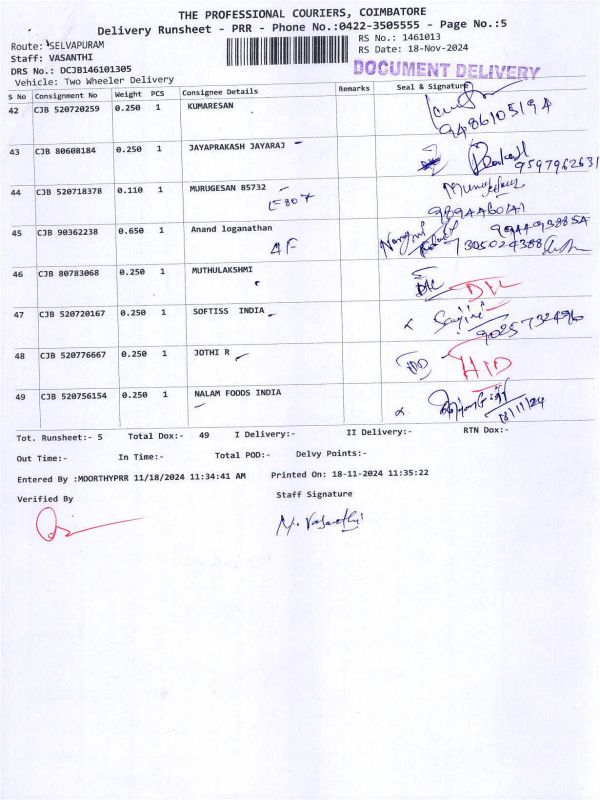 THE PROFESSIONAL COURIERS, COIMBATORE
Delivery Runsheet - PRR - Phone No.:0422-3505555 - Page No.:5
Route: SELVAPURAM
RS No.: 1461013
Staff: VASANTHI
RS Date: 18-Nov-2024
DRS No.: DCJB146101305
DOCUMENT DELIVERY
Vehicle: Two Wheeler Delivery
S No Consignment No Weight PCS Consignee Details Remarks Seal & Signature
42 CJB 520720259 0.250 1 KUMARESAN
9486105194
43 CJB 80608184 0.250 1 JAYAPRAKASH JAYARAJ
9597962631
44 CJB 520718378 0.110 1 MURUGESAN 85732
45 CJB 90362238 0.650 1 Anand loganathan
AF 7305024388
46 CJB 80783068 0.250 1 MUTHULAKSHMI
DIL DIL
47 CJB 520720167 0.250 1 SOFTISS INDIA
9025732496
48 CJB 520776667 0.250 1 JOTHI R
HID HID
49 CJB 520756154 0.250 1 NALAM FOODS INDIA
18/11/24
Tot. Runsheet:- 5 Total Dox:- 49 I Delivery:- II Delivery:- RTN Dox:-
Out Time:- In Time:- Total POD:- Delvy Points:-
Entered By :MOORTHYPRR 11/18/2024 11:34:41 AM Printed On: 18-11-2024 11:35:22
Verified By Staff Signature
M. Vasanthi